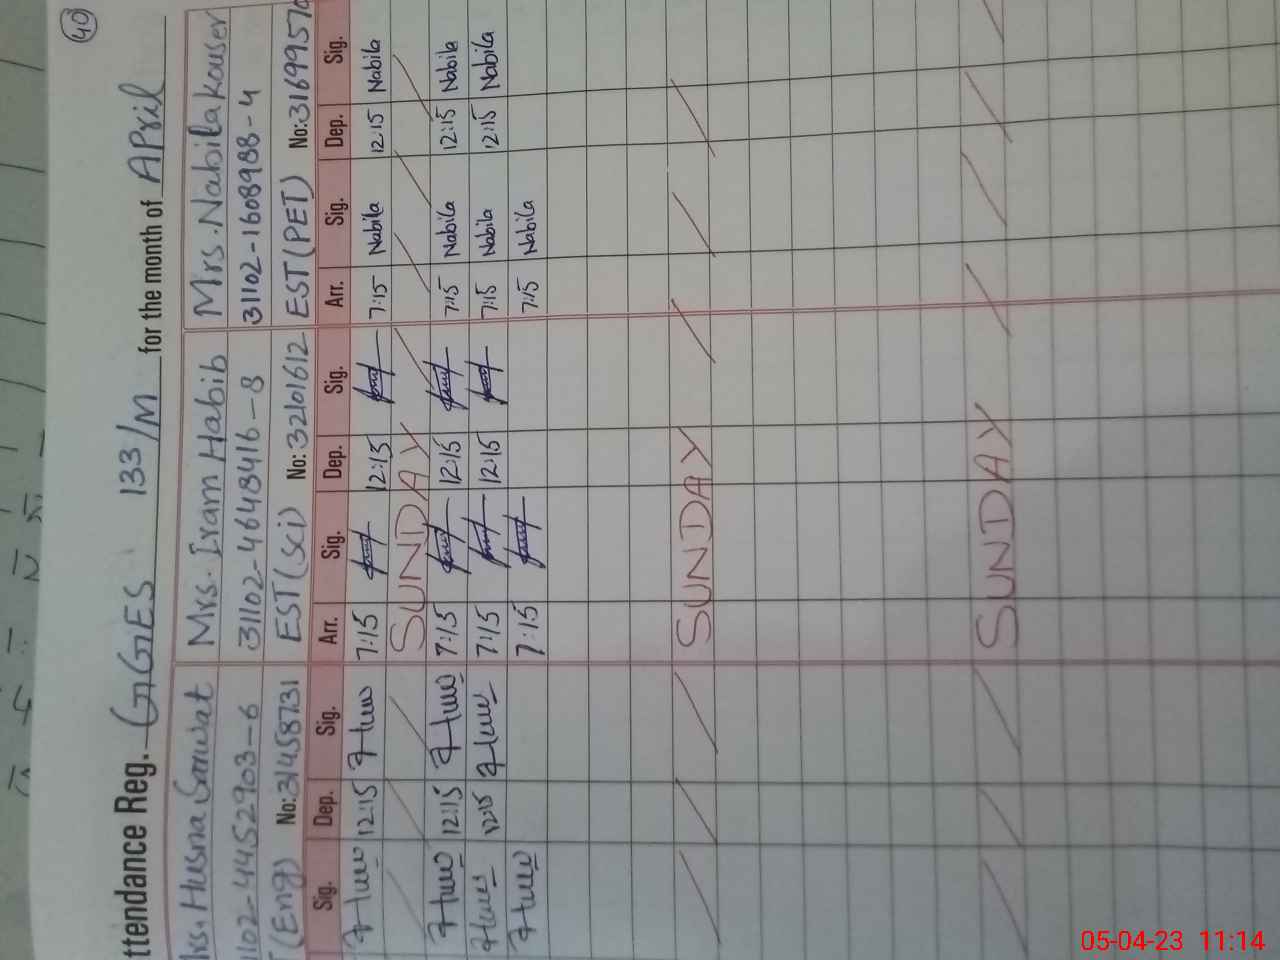 40
ttendance Reg. GGES 133/M for the month of April
Mrs. Husna Sarwat Mrs. Iram Habib Mrs. Nabila kouser
1102-4452903-6 31102-4648416-8 31102-1608988-4
(Eng) No: 31458731 EST (Sci) No: 32101612 EST (PET) No: 3169957
Sig. Dep. Sig. Arr. Sig. Dep. Sig. Arr. Sig. Dep. Sig.
12:15 7:15 12:15 7:15 Nabila 12:15 Nabila
SUNDAY
12:15 7:15 12:15 7:15 Nabila 12:15 Nabila
12:15 7:15 12:15 7:15 Nabila 12:15 Nabila
7:15 7:15 Nabila
SUNDAY
SUNDAY
05-04-23 11:14